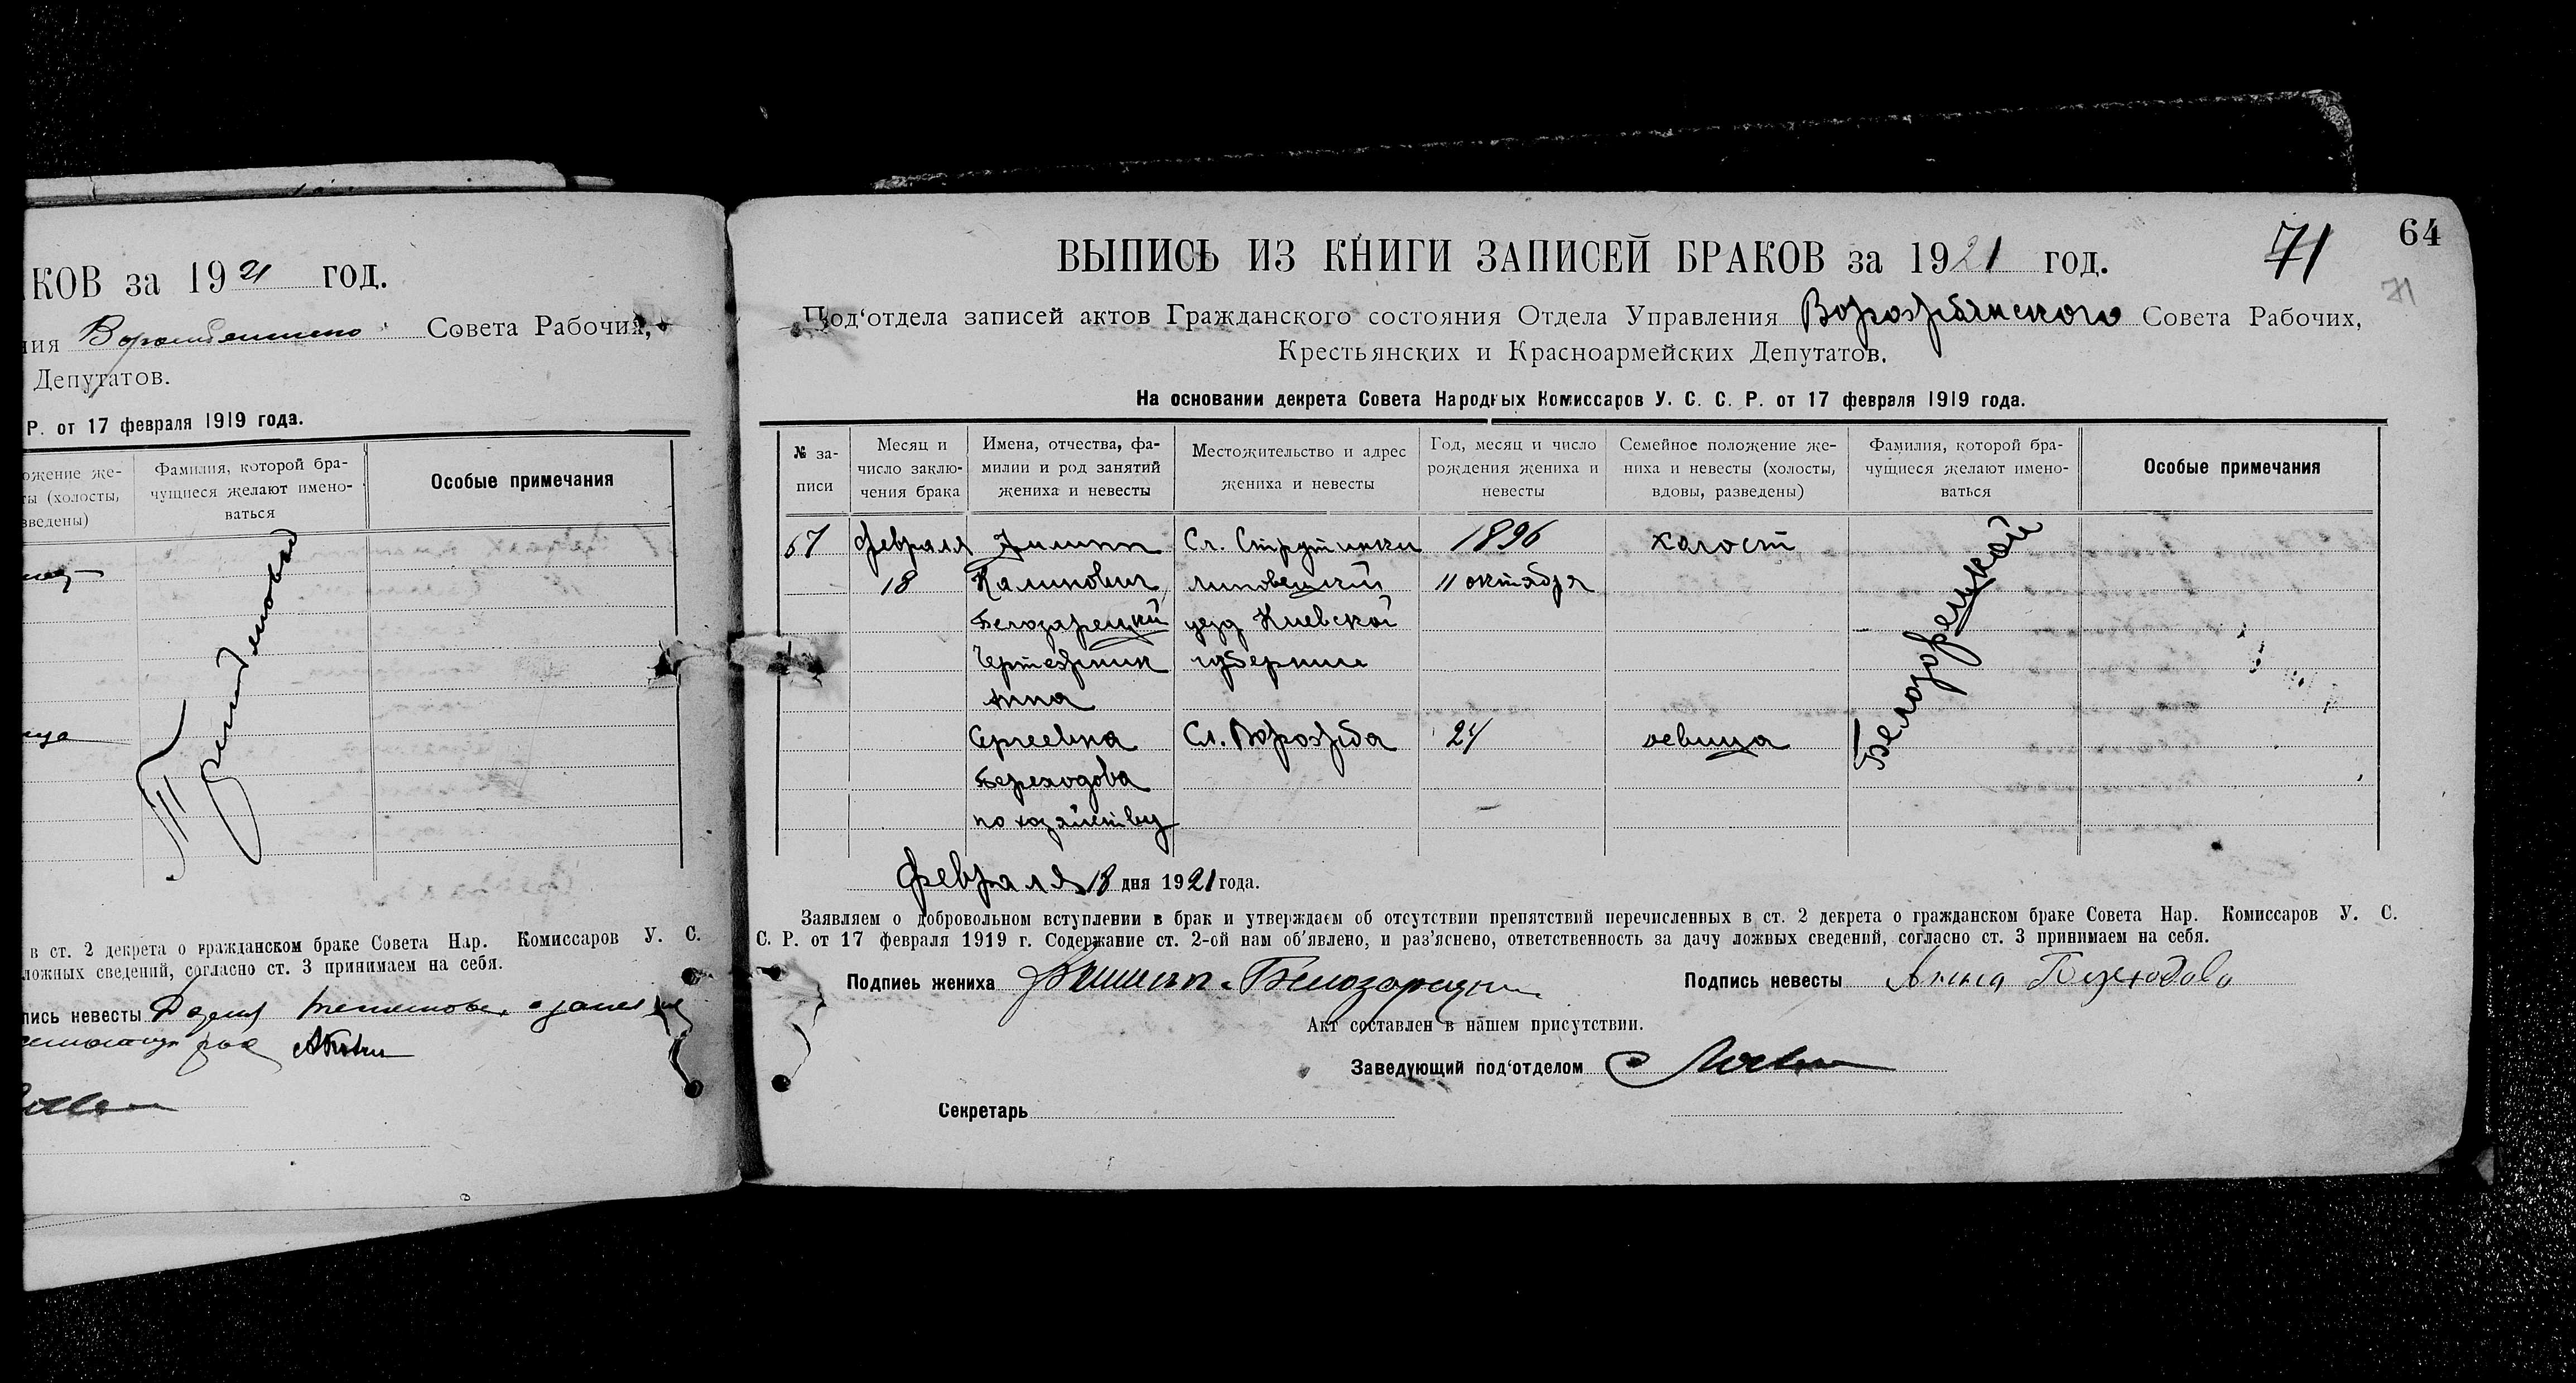 КОВ за 1921 год.
Совета Рабочих,
Депутатов.
Р. от 17 февраля 1919 года.
Фамилия, которой бра-
чущиеся желают имено-
ваться
Особые примечания
в ст. 2 декрета о гражданском браке Совета Нар. Комиссаров У. С.
ложных сведений, согласно ст. 3 принимаем на себя.
невесты
64
71
71
ВЫПИСЬ ИЗ КНИГИ ЗАПИСЕЙ БРАКОВ за 1921 год.
Под‘отдела записей актов Гражданского состояния Отдела Управления Ворожбянского Совета Рабочих,
Крестьянских и Красноармейских Депутатов.
На основании декрета Совета Народных Комиссаров У. С. С. Р. от 17 февраля 1919 года.
№ за-
писи
Месяц и
число заклю-
чения брака
Имена, отчества, фа-
милии и род занятий
жениха и невесты
Местожительство и адрес
жениха и невесты
Год, месяц и число
рождения жениха и
невесты
Семейное положение же-
ниха и невесты (холосты,
вдовы, разведены)
Фамилия, которой бра-
чущиеся желают имено-
ваться
Особые примечания
67 февраля Филипп 1896 халост
18 Калинович липовецкий 11 октября
Белозарецкий уезд Киевской
Чертежник губернии
Анна
Сергеевна Сл. Ворожба 24 девица
Береходова
по хозяйству
Белозорецкой
февраля 18 дня 1921 года.
Заявляем о добровольном вступлении в брак и утверждаем об отсутствии препятствий перечисленных в ст. 2 декрета о гражданском браке Совета Нар. Комиссаров У. С.
С. Р. от 17 февраля 1919 г. Содержание ст. 2-ой нам об‘явлено, и раз‘яснено, ответственность за дачу ложных сведений, согласно ст. 3 принимаем на себя.
Подпись жениха Филипп Белозарецки Подпись невесты Анна Береходова
Акт составлен в нашем присутствии.
Заведующий под‘отделом
Секретарь